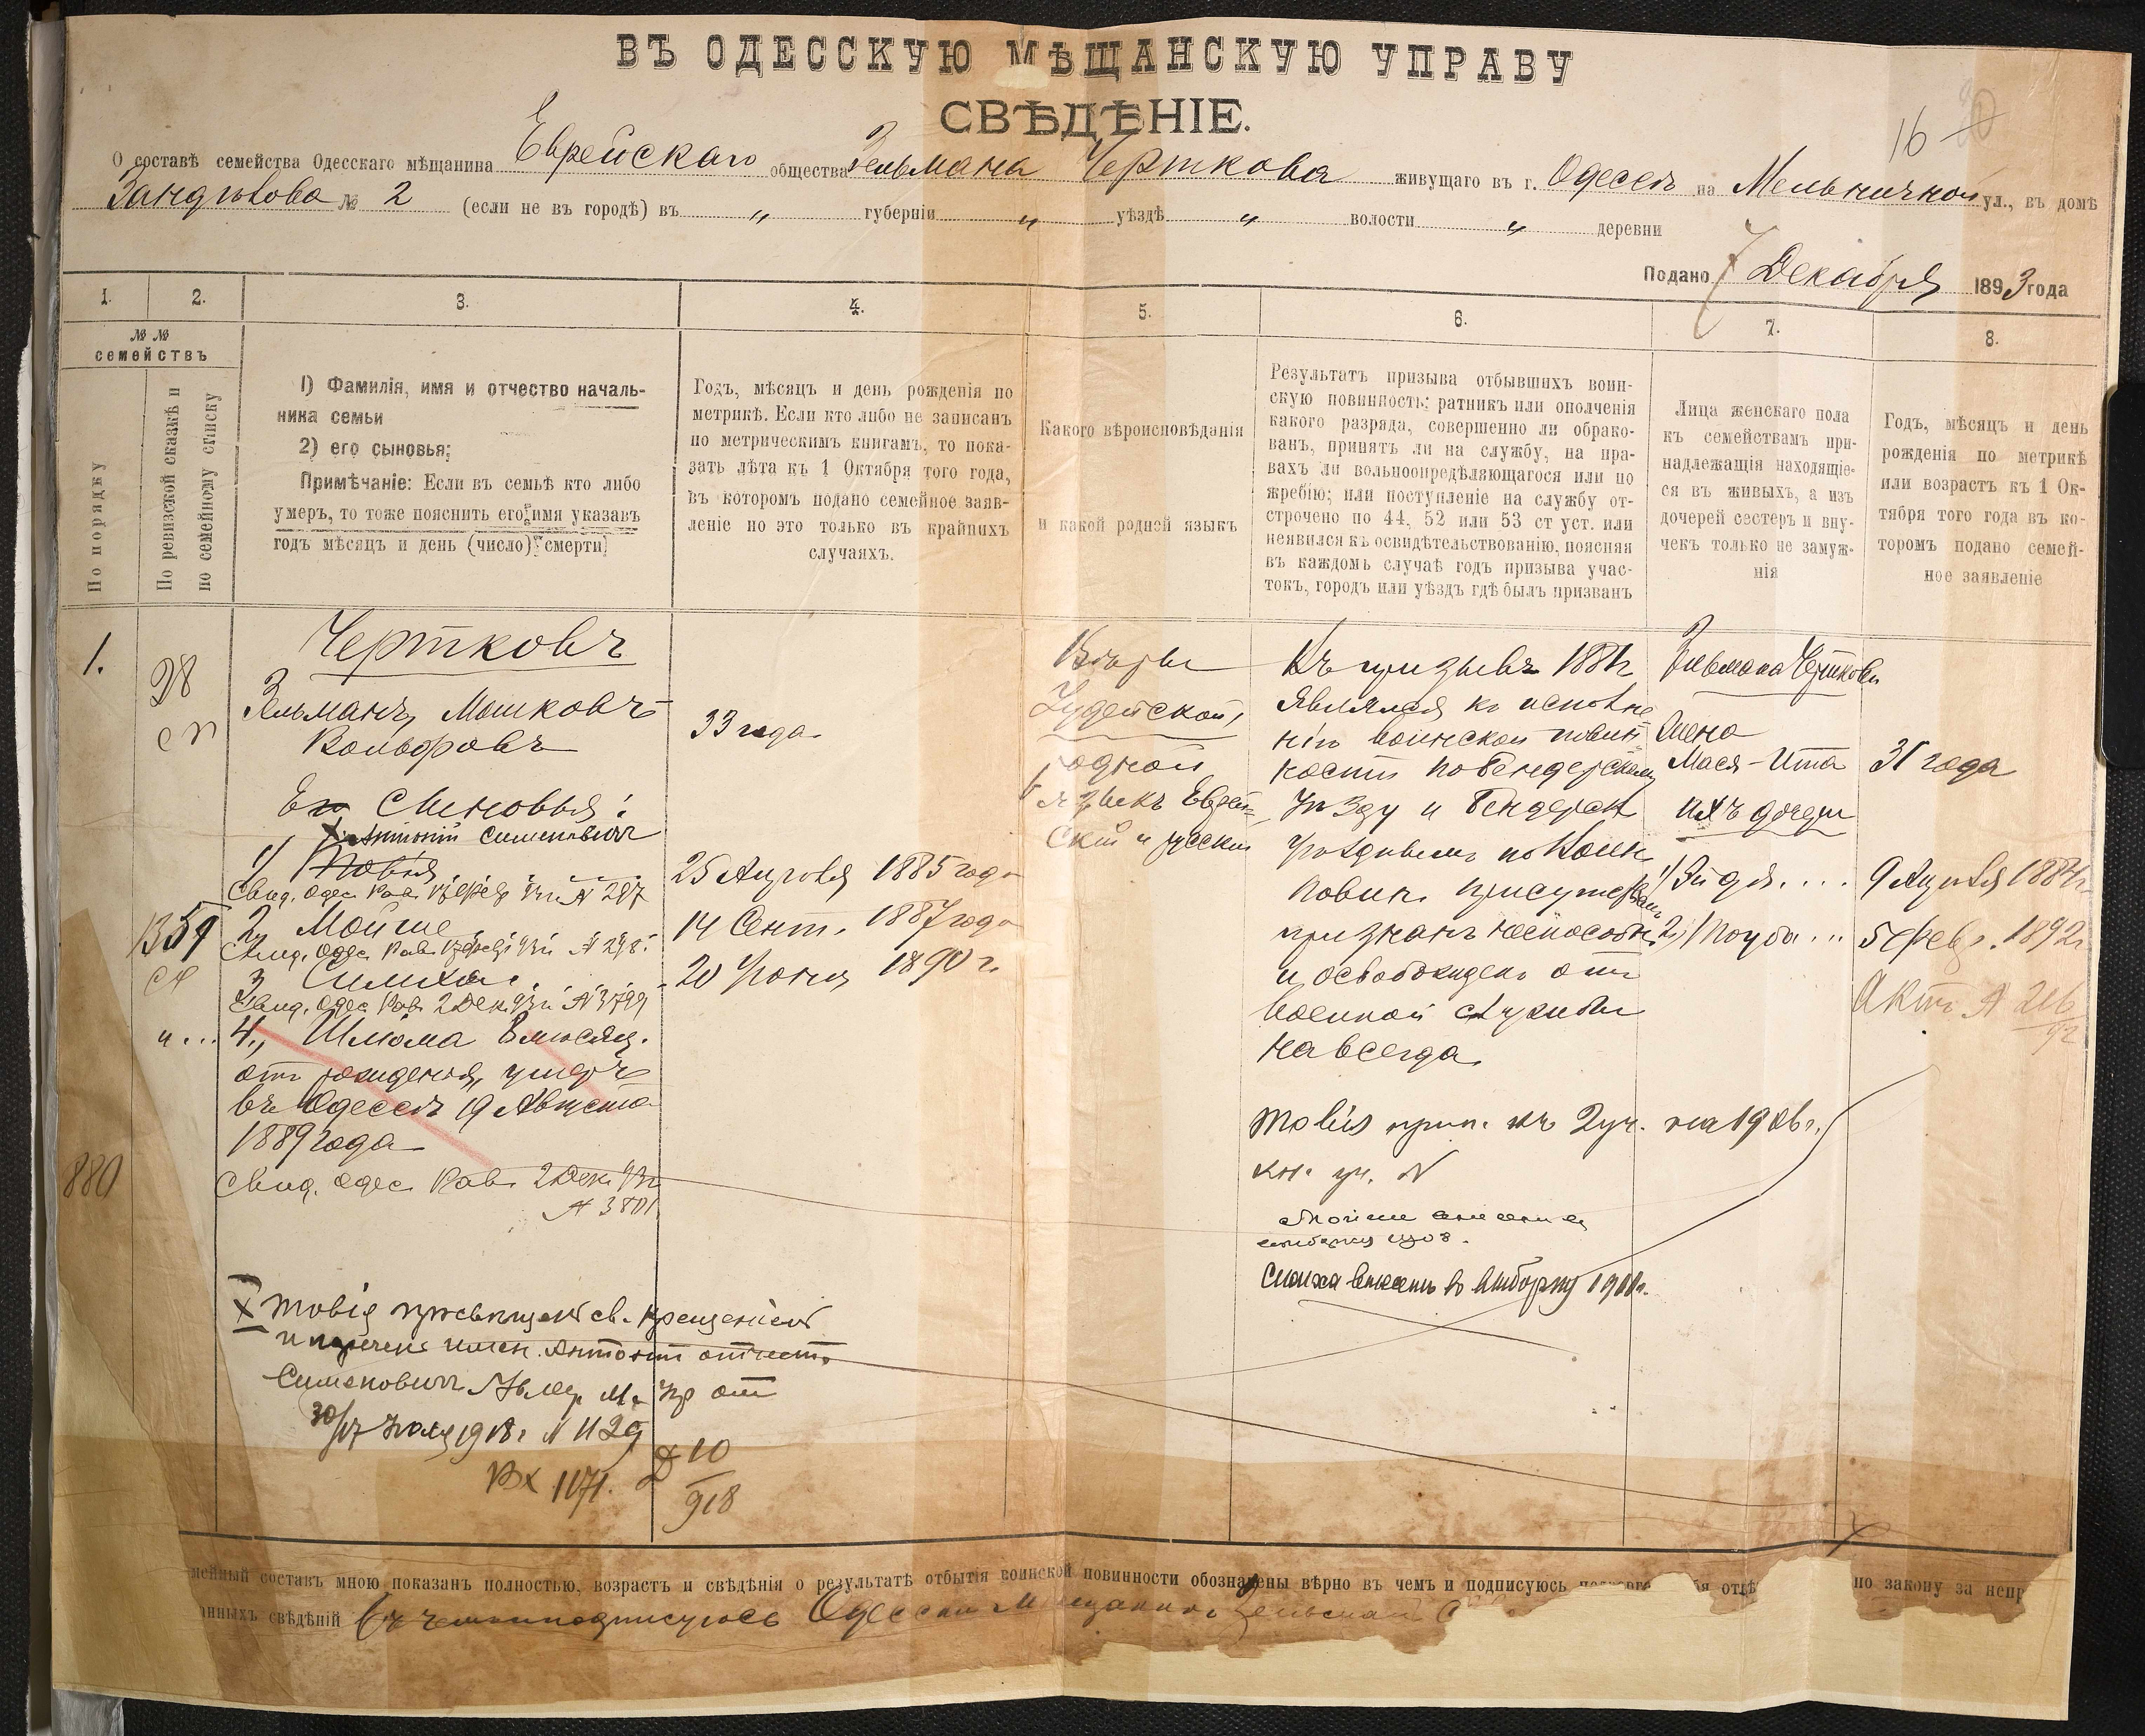 ВЪ ОДЕССКУЮ МѢЩАНСКУЮ УПРАВУ
СВѢДѢНІЕ.
16
О составѣ семейства Одесскаго мѣщанина Еврейскаго общества Зельмана Черткова живущаго въ г. Одессѣ на Мельничной ул., въ домѣ
№ 2 (если не въ городѣ) въ „ губерніи „ уѣздѣ „ волости „ деревни
Подано 7 Декабря 1893 года
1. 2. 3. 4. 5. 6. 7. 8.
№ №
семействъ
По порядку
По ревизской сказкѣ и
по семейному списку
1) Фамилія, имя и отчество началь-
ника семьи
2) его сыновья;
Примѣчаніе: Если въ семьѣ кто либо
умеръ, то тоже пояснить его имя указавъ
годъ мѣсяцъ и день (число) смерти
Годъ, мѣсяцъ и день рожденія по
метрикѣ. Если кто либо не записанъ
по метрическимъ книгамъ, то пока-
зать лѣта къ 1 Октября того года,
въ которомъ подано семейное заяв-
леніе но это только въ крайнихъ
случаяхъ.
Какого вѣроисповѣданія
и какой родной языкъ
Результатъ призыва отбывшихъ воин-
скую повинность; ратникъ или ополченія
какого разряда, совершенно ли обрако-
ванъ, принятъ ли на службу, на пра-
вахъ ли вольноопредѣляющагося или по
жребію; или поступленіе на службу от-
строчено по 44, 52 или 53 ст уст. или
неявился къ освидѣтельствованію, поясняя
въ каждомъ случаѣ годъ призыва учас-
токъ, городъ или уѣздъ гдѣ былъ призванъ
Лица женскаго пола
къ семействамъ при-
надлежащія находящіе-
ся въ живыхъ, а изъ
дочерей сестеръ и вну-
чекъ только не замуж-
нія
Годъ, мѣсяцъ и день
рожденія по метрикѣ
или возрастъ къ 1 Ок-
тября того года въ ко-
торомъ подано семей-
ное заявленіе
1.
98
сп
Чертковъ
Зельманъ Мошковъ-
Вольфовъ
33 года
Его Сыновья:
X Антоній Сименовичъ
1) Товія
25 Апрѣля 1885 года
Свид. Одес. Рав. 93 г. № 297
1359
2, Мойше
14 Сент. 1887 года
Свид. Одес. Рав. 93 г. № 298
3, Симха
20 Іюня 1890 г.
Свид. Одес Рав. 2 Дек. 93 г. № 3799
4., Шлома 8 мѣсяц.
отъ рожденія, умеръ
въ Одессѣ 19 Августа
1889 года
880
Свид. Одес. Рав. 2 Дек. 93 г.
№ 3801
Вѣры
Іудейской,
родной
языкъ Еврей-
скій и русскій
Къ призыву 1881 г.
являлся къ исполне-
нію воинской повин-
ности по Бендерскому
Уѣзду и Бендерск.
Уѣзднымъ по Воин.
Повин. Присутств.
признанъ неспособн.
и освобожденъ отъ
военной службы
навсегда.
Зельмана Черткова
Жена
Мася-Ита 31 года
ихъ дочери
1) Зйдля.... 9 Апрѣля 1884 г.
2) Поуба... 5 Февр. 1892 г.
Актъ № 216
92
Товія прип. къ 2 уч. на 1906 г.
кн. уч. N
Мойше внесенъ въ
Симха внесенъ въ 1911 г.
X Товія просвѣщенъ св. крещеніемъ
и нареченъ имен. Антоній отчеств.
Сименовичъ М. Упр от
30/17 Іюля 1918 г. N 1129
Вх 1171. Д 10
918
мейный составъ мною показанъ полностью, возрастъ и свѣдѣнія о результатѣ отбытія воинской повинности обозначены вѣрно въ чемъ и подписуюсь по закону за непр
анныхъ свѣдѣній Въ чемъ и подписуюсь Одесскій Мѣщанинъ Зельманъ